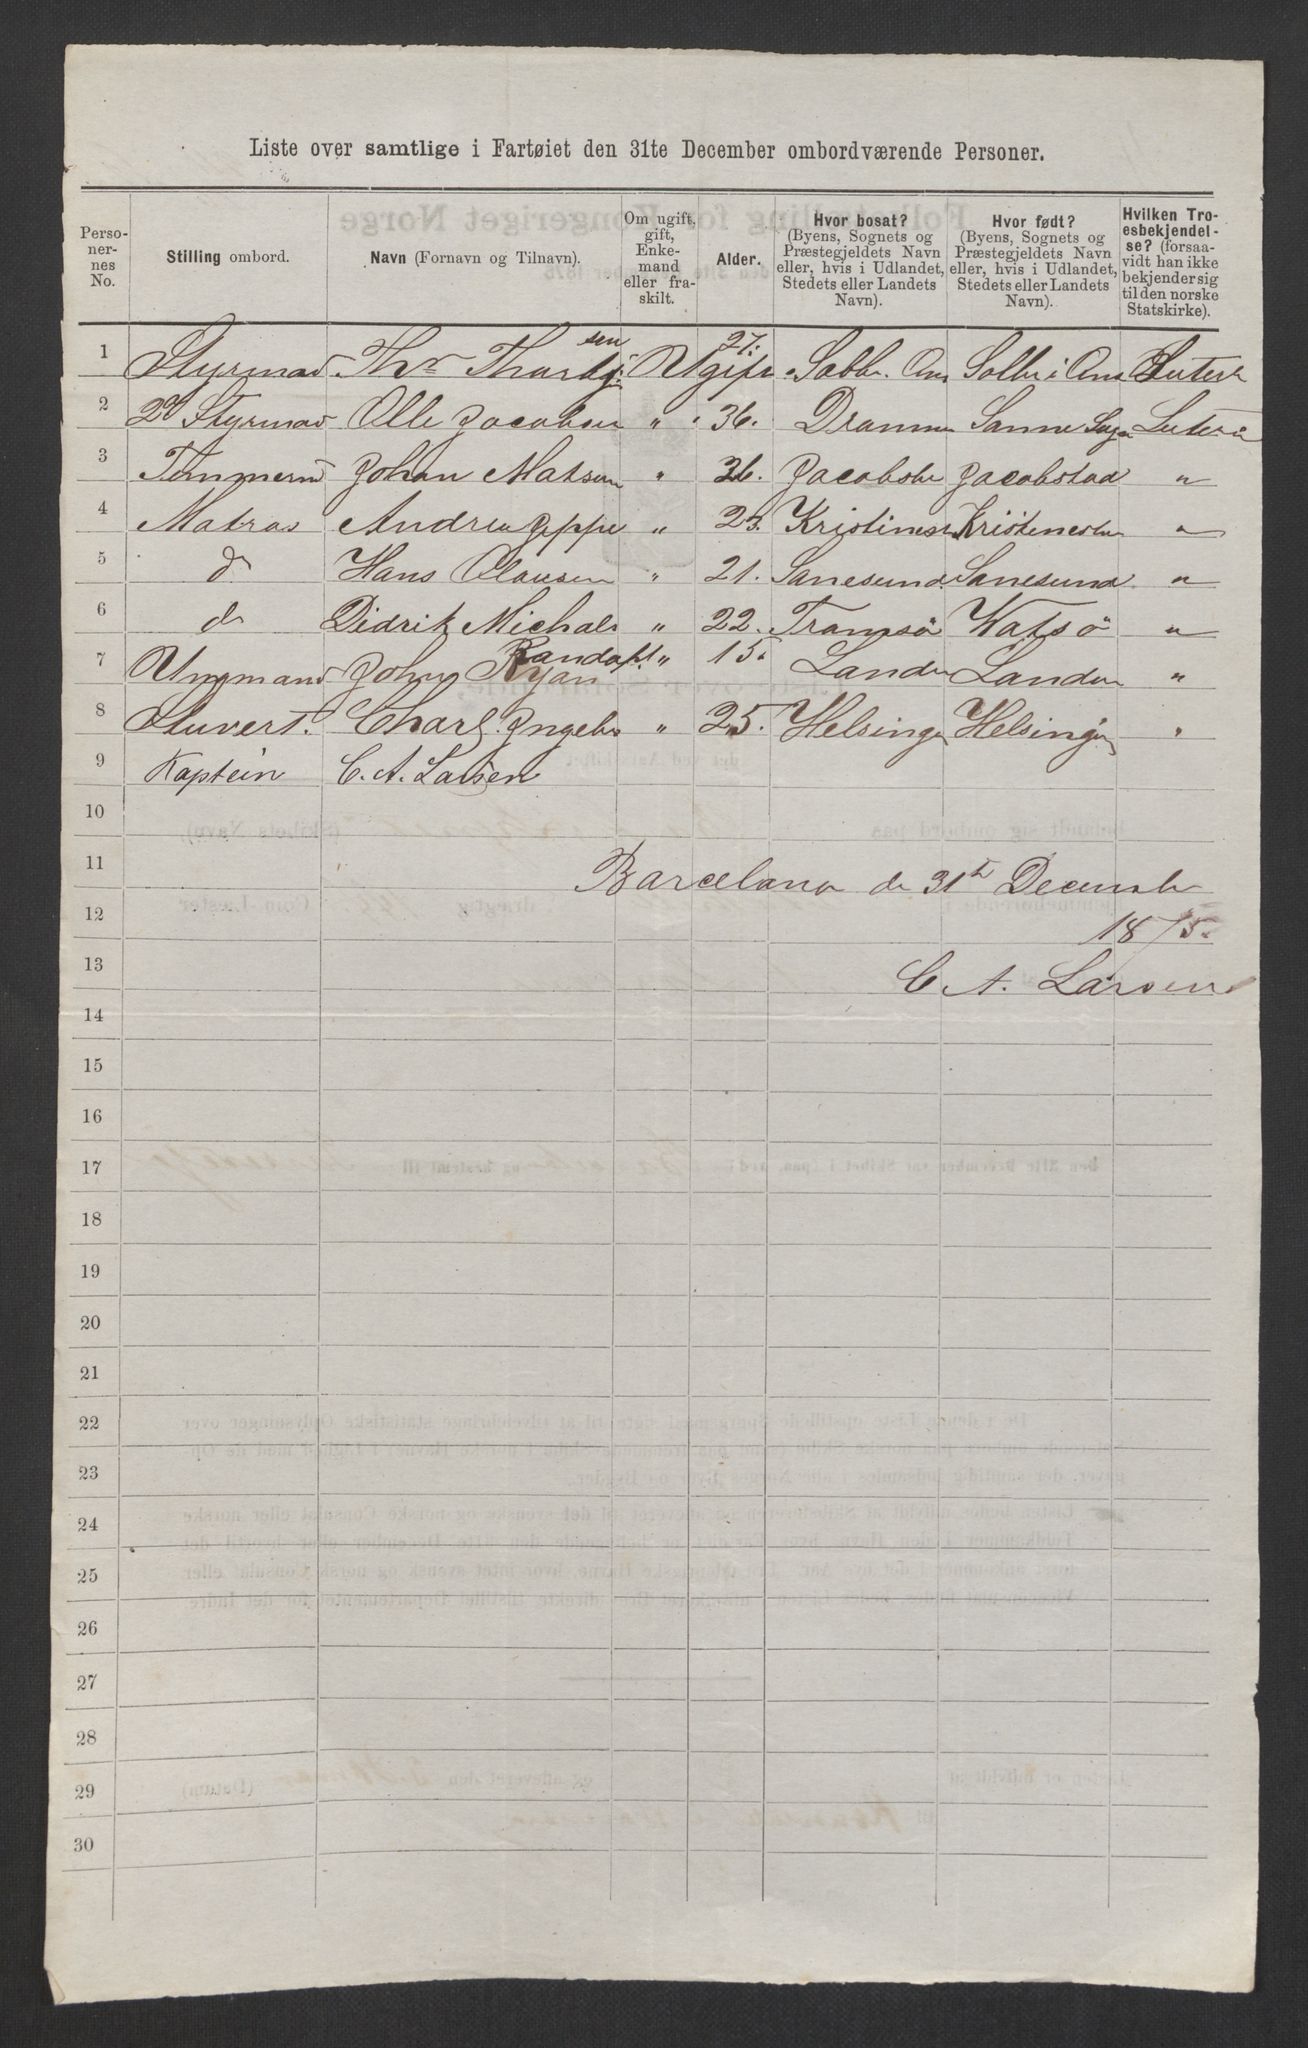 Liste over samtlige i Fartøiet den 31te December ombordværende Personer.
Personernes No. | Stilling ombord. | Navn (Fornavn og Tilnavn). | Om ugift, gift, Enkemand eller fraskilt. | Alder. | Hvor bosat? (Byens, Sognets og Præstegjeldets Navn eller, hvis i Udlandet, Stedets eller Landets Navn). | Hvor født? (Byens, Sognets og Præstegjeldets Navn eller, hvis i Udlandet, Stedets eller Landets Navn). | Hvilken Troesbekjendelse? (forsaavidt han ikke bekjender sig til den norske Statskirke).
1 Styrmad Ugift 27.
2 2d Styrmad Olle Jacobsen " 36. Dramm Sanne
3 Johan Matsen " 36. Jacobsta Jacobstad "
4 Matros Andrea Jeppe " 23. Kristinest Kristinesta "
5 do Hans Olausen " 21. Sanesund Sanesund "
6 do Didrik Michals " 22. Tramsö Watsö "
7 Ungmand John Ryan Randapt " 15. Landon Landon "
8 Stuvert. Charl. Ingeb " 25. Helsingø Helsingø "
9 Kaptein C. A. Larsen
10
11 Barcelona de 31te Decemb
12 1875.
13 C A. Larsen
14
15
16
17
18
19
20
21
22
23
24
25
26
27
28
29
30